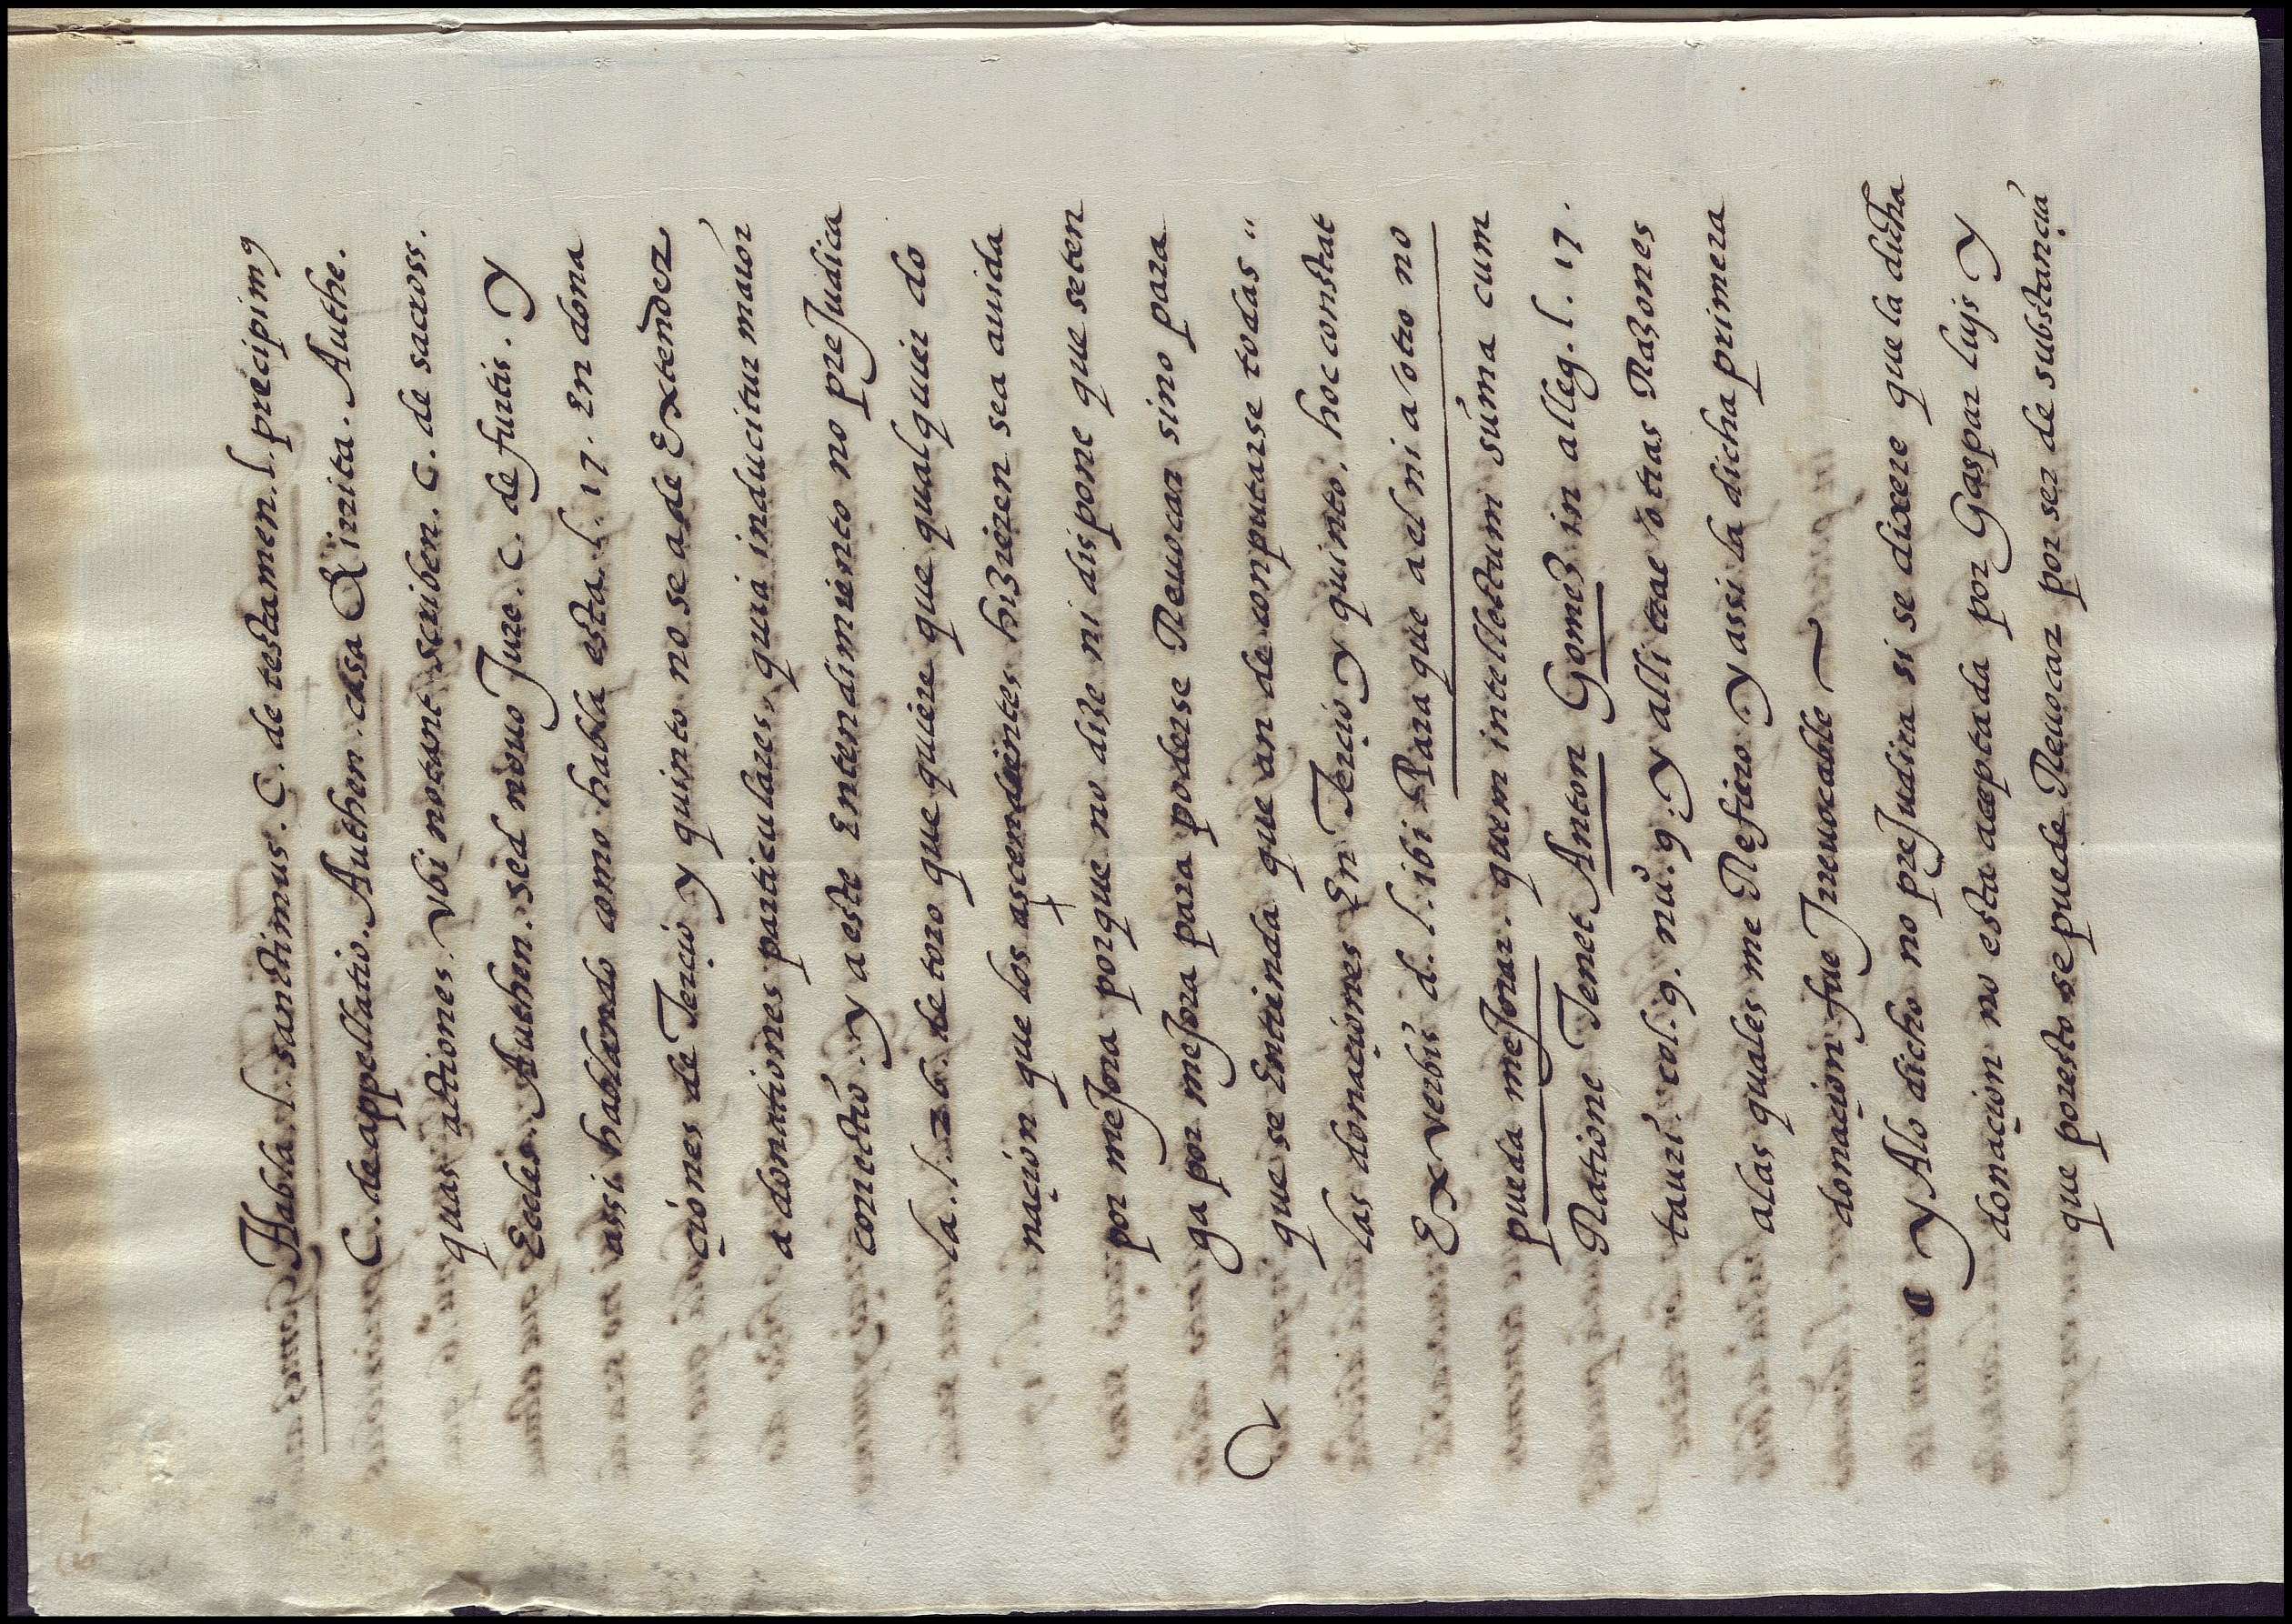 Habla. l. sanctimus. C. de testamen. l. precipimꝰ
C. de appellatio. Authen. casa Qirrita. Authe.
quas actiones. vbi notant scriben. C. de sacross.
Eccles. Authen. sed nouo Jure. C. de furtis. Y
assi hablando como habla esta. l. 17. En dona
çiones de Terçio y quinto no se a de Extender
a donationes particulares, quia inducitur maior
corectio. Y a este Entendimiento no preJudica
la. l. 26. de toro que quiere que qualquier do
naçion que los ascendientes hiZieren sea auida
por meJora porque no dize ni dispone que se ten
ga por meJora para poderse Reuocar sino para
que se Entienda que an de conputarse todas
las donaçiones En Terçio y quinto. hoc constat
Ex verbis d. l. ibi Para que a el ni a otro no
pueda meJorar. quem intellectum suma cum
Ratione Tenet Anton Gomez in alleg. l. 17.
tauri. col. 9. nu.º 9. y alli trae otras Razones
a las quales me Refiero y assi la dicha primera
donaçion fue Jrreuocable
y A lo dicho no preJudica si se dixere que la dicha
donaçion no esta aceptada por Gaspar luis Y
que por esto se puede Reuocar por ser de substançia